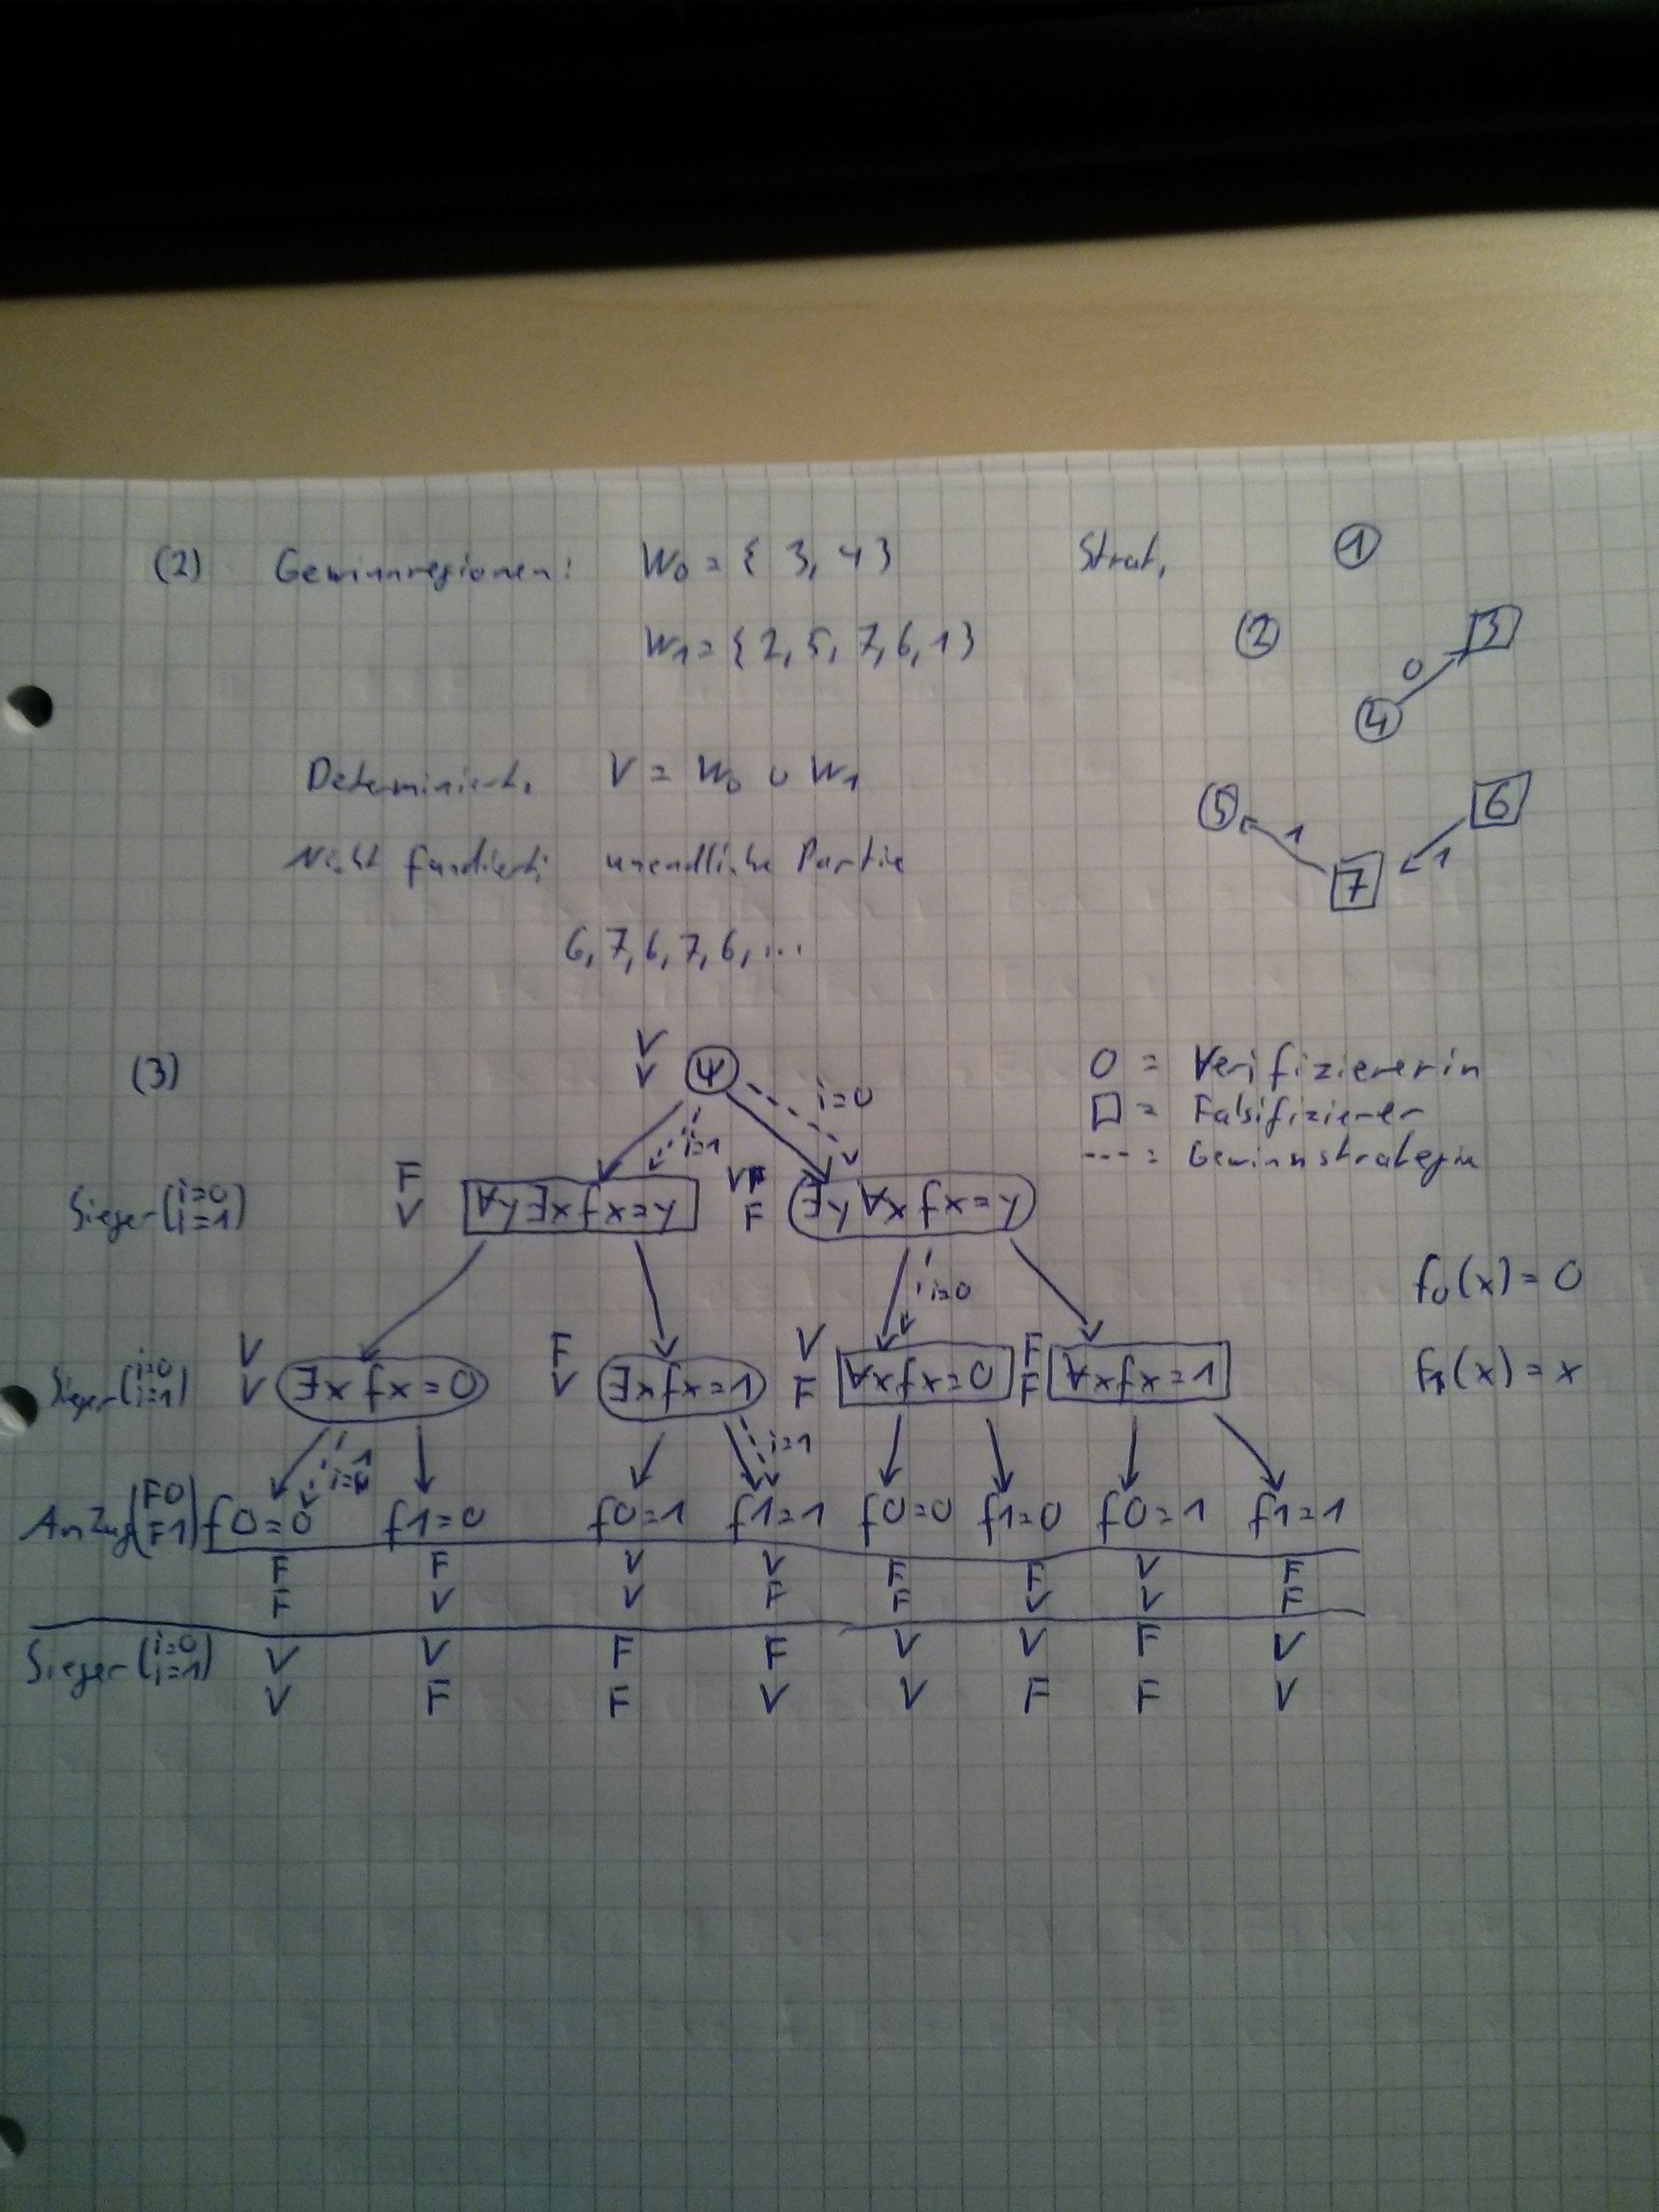 (2) Gewinnregionen: W₀ = { 3, 4 } Strat. 1
W₁ = { 2, 5, 7, 6, 1 } 2 3
0
4
Determiniert. V = W₀ ∪ W₁
5 1 6
Nicht fundiert: unendliche Partie
7 1
6, 7, 6, 7, 6, ...
(3) V V ψ i=0 O = Verifiziererin
□ = Falsifizierer
i=1 --- = Gewinnstrategie
Sieger (i=0 i=1) F V ∀y∃x fx=y V F ∃y∀x fx=y
i=0 f₀(x) = 0
Sieger (i=0 i=1) V V ∃x fx=0 F V ∃x fx=1 V F ∀x fx=0 F F ∀x fx=1 f₁(x) = x
i=1
Am Zug (F0 F1) f0=0 f1=0 f0=1 f1=1 f0=0 f1=0 f0=1 f1=1
F F V V F F V F
F V V F F V V F
Sieger (i=0 i=1) V V F F V V F V
V F F V V F F V